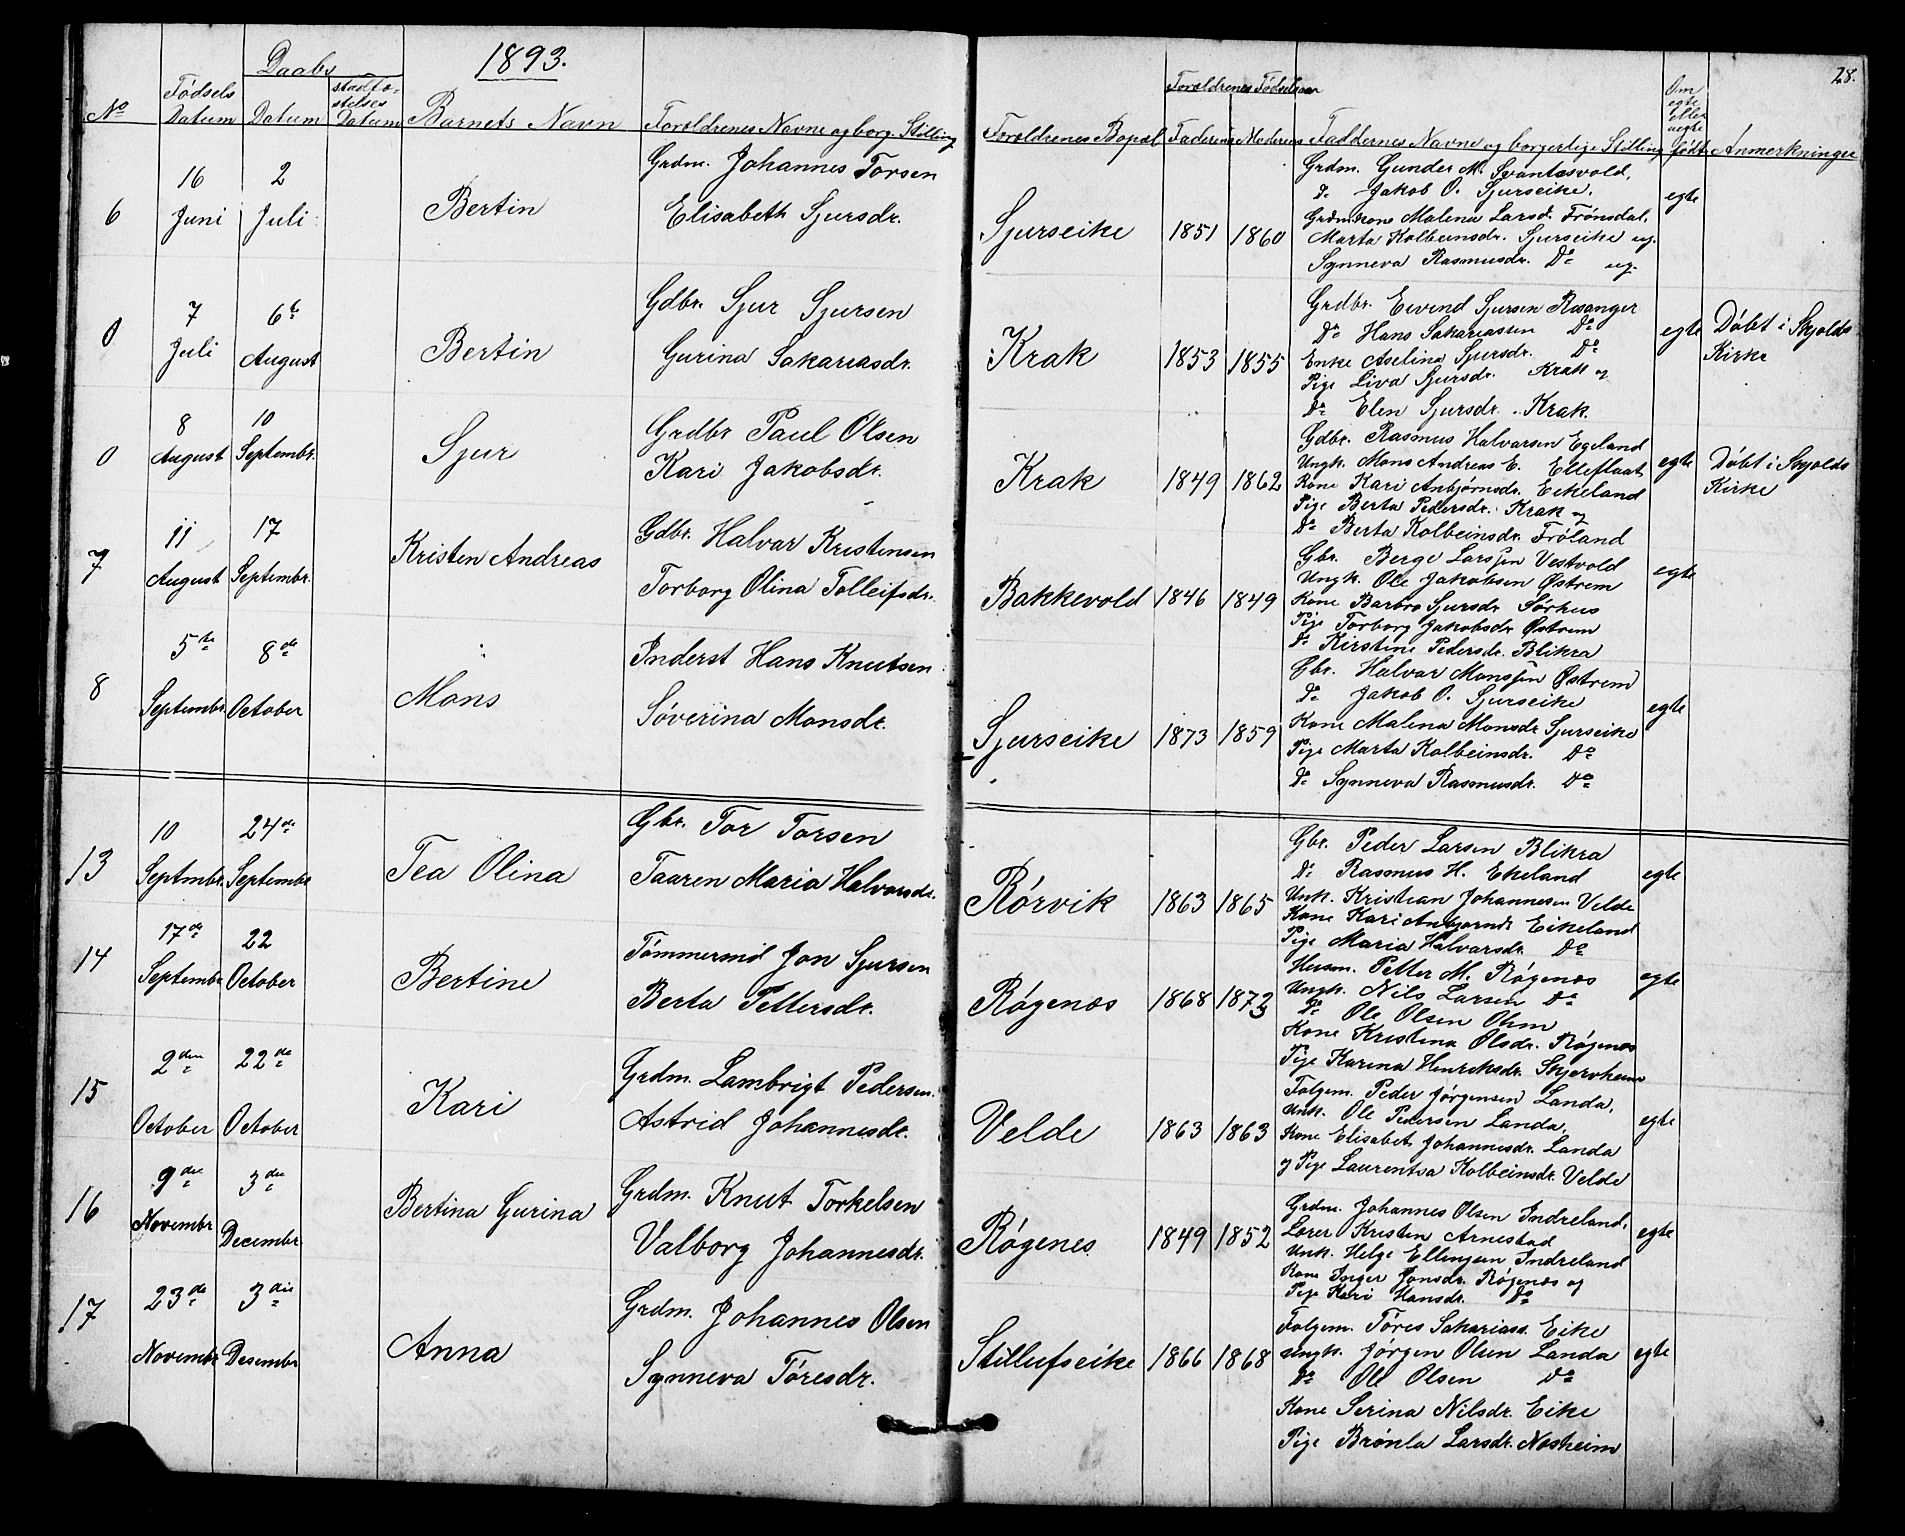 1893.
28.
Daabs
Fødsels Datum
Datum
stadfæ-
stelses
Datum
No
Barnets Navn
Forældrenes Navne og borg. Stilling
Forældrenes Bopæl
Forældrenes Fødselsaar
Faderens Moderens
Faddernes Navne og borgerlige Stilling
Om
egte
eller
uegte
født
Anmerkninger
6
16 Juni
2 Juli
Bertin
Grdm. Johannes Torsen
Elisabeth Sjursdr.
Sjurseike
1851 1860
Grdm. Gunder M. Svantesvold,
Do Jakob O. Sjurseike,
Grdmkone Malena Larsd. Frønsdal,
Marta Kolbeinsdr. Sjurseike ug.
Synneva Rasmusdr. Do ug.
egte
0
7 Juli
6te August
Bertin
Gdbr. Sjur Sjursen
Gurina Sakariasdr.
Krak
1853 1855
Grdbr. Eivind Sjursen Røsanger
Do Hans Sakariassen Do
Enke Aselina Sjursdr. Do
Pige Liva Sjursdr. Krak og
Do Elen Sjursdr. Krak.
egte
Døbt i Skjolds
Kirke
0
8 August
10 Septembr.
Sjur
Grdbr Paul Olsen
Kari Jakobsdr.
Krak
1849 1862
Gdbr. Rasmus Halvarsen Egeland
Ungk. Mons Andreas E. Elleflaat
Kone Kari Anbjørnsdr. Eikeland
Pige Berta Pedersdr. Krak og
Do Berta Kolbeinsdr. Frøland
egte
Døbt i Skjolds
Kirke
7
11 August
17 Septembr.
Kristen Andreas
Gdbr. Halvar Kristensen
Torborg Olina Tolleifsdr.
Bakkevold
1846 1849
Gbr. Berge Larssen Vestvold
Ungk. Ole Jakobsen Østrem
Kone Barbro Sjursdr Sørhus
Pige Torborg Jakobsdr Østrem
Do Kirstine Pedersdr. Blikra
egte
8
5te Septembr.
8de October
Mons
Inderst Hans Knutsen
Søverina Monsdr.
Sjurseike
1873 1859
Gbr. Halvar Monssen Østrem
Do Jakob O. Sjurseike
Kone Malena Monsdr Sjurseike
Pige Marta Kolbeinsdr. Do
Do Synneva Rasmusdr. Do
egte
13
10 Septmbr.
24de Septembr
Tea Olina
Gbr. Tor Torsen
Taaren Maria Halvarsdr.
Rørvik
1863 1865
Gbr. Peder Larsen Blikra
Do Rasmus H. Ekeland
Unk. Kristian Johannesen Velde
Kone Kari Anbjørnsdr Eikeland
Pige Maria Halvarsdr. Do
egte
14
17de Septembr
22 October
Bertine
Tømmermd Jon Sjursen
Berta Pettersdr.
Røgenæs
1868 1873
Husm. Petter M. Røgenæs
Ungk. Nils Larsen Do
Do Ole Olsen Ohm
Kone Kristina Olsdr. Røgenæs
Pige Karina Henriksdr. Skjerveheim
egte
15
2den October
22de October
Kari
Grdm. Lambrigt Pedersen
Astrid Johannesdr.
Velde
1863 1863
Folgem. Peder Jørgensen Landa,
Unk. Ole Pedersen Landa,
Kone Elisabet Johannesdr. Landa
og Pige Laurentsa Kolbeinsdr. Velde
egte
16
9de Novembr
3die Decembr
Bertina Gurina
Grdm. Knut Torkelsen
Valborg Johannesdr.
Røgenes
1849 1852
Grdm. Johannes Olsen Indreland,
Lærer Kristen Arnestad
Unk. Helge Ellingsen Indreland
Kone Inger Jonsdr. Røgenæs og
Pige Kari Hansdr. Do
egte
17
23de Novembr
3die Desembr
Anna
Grdm. Johannes Olsen
Synneva Tøresdr.
Stillufseike
1866 1868
Folgem. Tøres Sakariass. Eike
Ungk. Jørgen Olsen Landa
Do Ole Olsen Do
Kone Serina Nilsdr. Eike
Pige Brønla Larsdr. Næsheim
egte